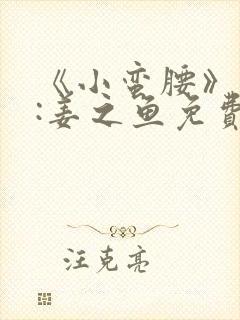 《小蛮腰》
:姜之鱼免費
汪克亮